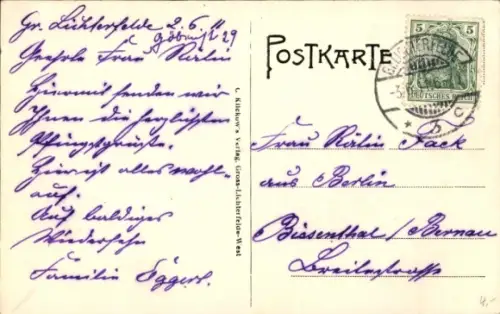 Gr. Lichterfelde 2.6.11
Göbenstr 29
Geehrte Frau Rätin
Hiermit senden wir
Ihnen die herzlichsten
Pfingstgrüße.
Hier ist alles wohl-
auf.
Auf baldiges
Wiedersehn
Familie Eggert.
L. Kitchow's Verlag, Gross-Lichterfelde-West
POSTKARTE
5 5
DEUTSCHES REICH
LICHTERFELDE
Frau Rätin Fack
aus Berlin
Biesenthal / Bernau
Breitestrasse
4,-